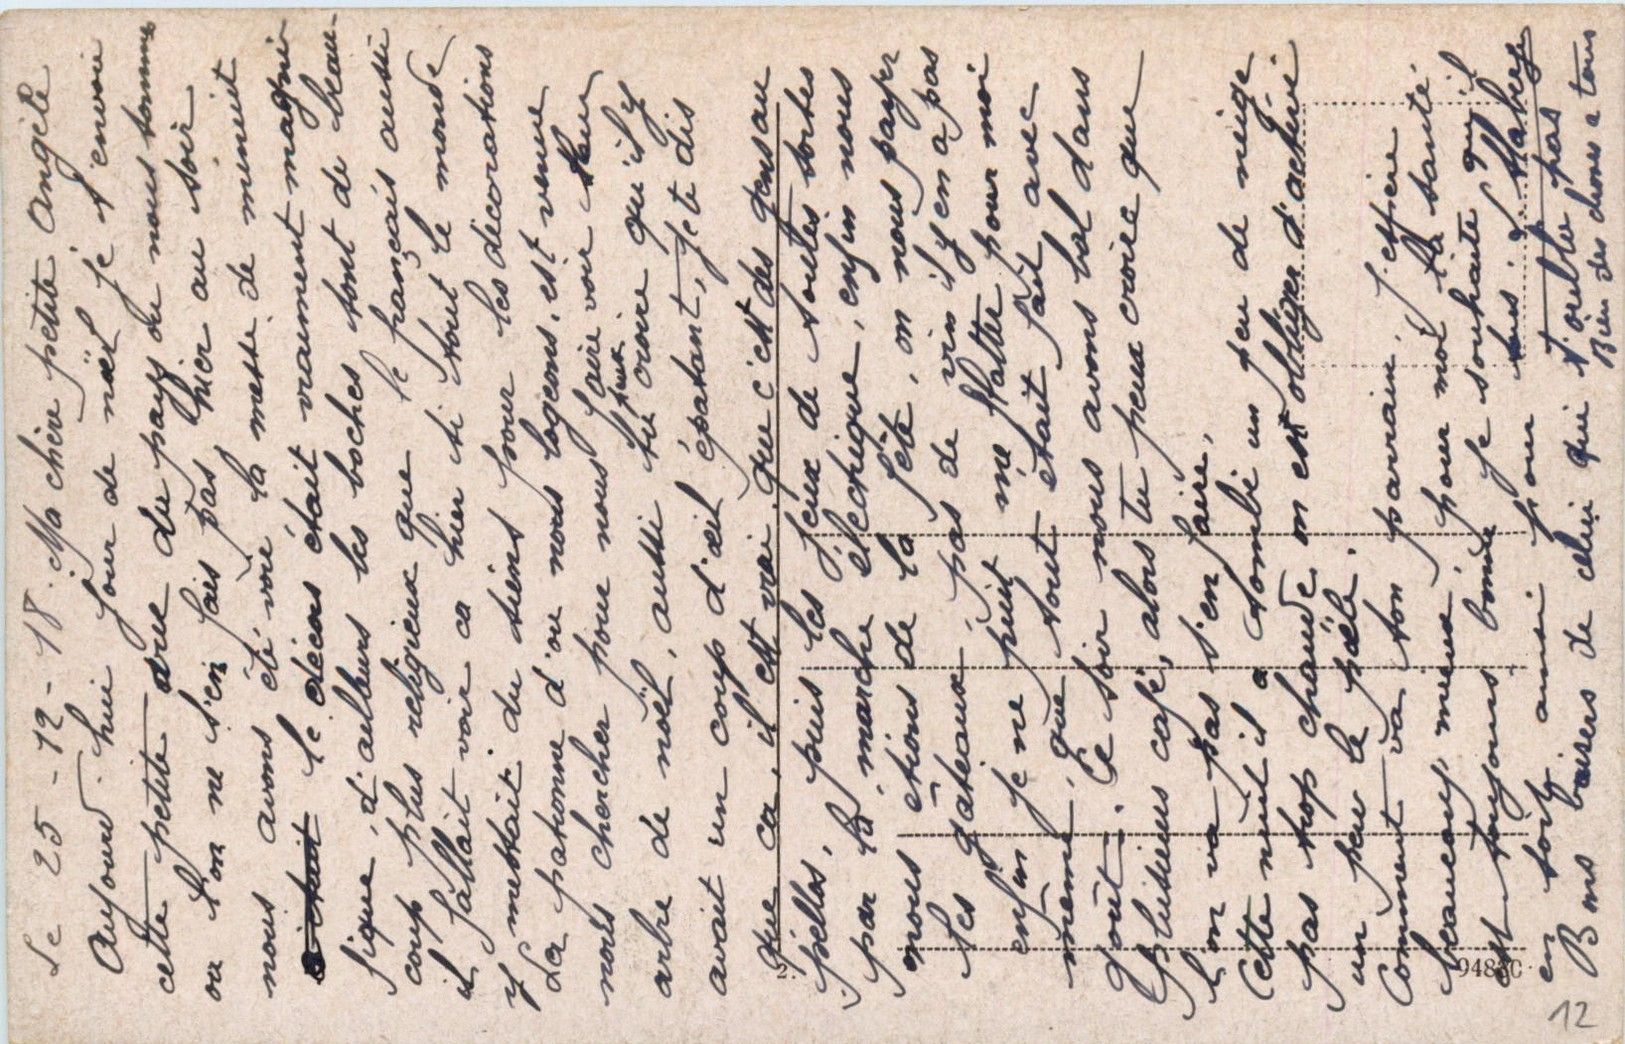 Le 25-12-18. Ma chère petite Angèle
Aujourd'hui jour de naël je t'envoie
cette petite vue du pays ou nous somme
ou l'on ne s'en fais pas hier au soir
nous avons été voir la messe de minuit
le décors était vraiment magni-
fique, d'ailleurs les boches sont de beau-
coup plus religieux que le français aussi
il fallait voir ca hier si tout le monde
y mettait du siens pour les décorations
La patronne d'ou nous logeons, est venue
nous chercher pour nous faire voir leur
arbre de noël, aussi tu peux croire qu'il y
avait un coup d'œil épatant, je te dis
que ca, il est vrai que c'est des gens au
pelles, puis les jeux de toutes sortes
par la marche élèctrique, enfin nous
nous étions de la fête, on nous paya
les gâteaux, pas de vin il y en a pas
enfin je ne puit me flatter pour moi
même, que tout était fait avec
goût. Ce soir nous avons bal dans
plusieurs café, alors tu peux croire que
l'on va pas s'en faire.
Cette nuit il a tombé un peu de neige
pas trop chaude, on est obliger d'activé
un peu le paële.
Comment va ton parrain, j'espère
beaucoup mieux, pour moi la santé
est toujours bonne je souhaite qu'il
en soit ainsi pour tous à Mahey
Bons baisers de celui qui t'oublie pas
Bien des choses a tous
2.
9488C
12